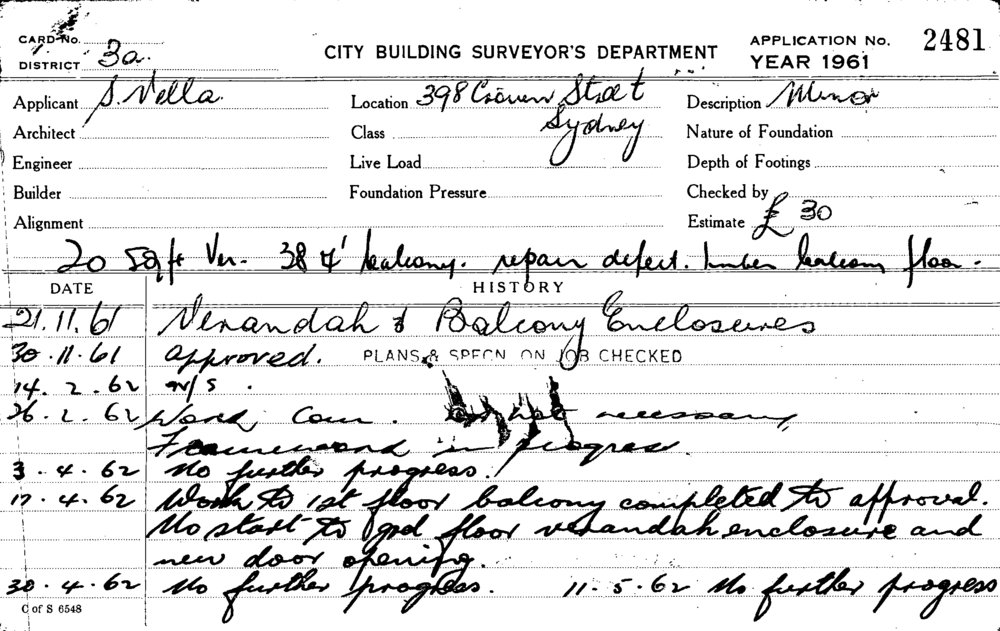 CARD No.
DISTRICT 3a.
CITY BUILDING SURVEYOR'S DEPARTMENT
APPLICATION No. 2481
YEAR 1961
Applicant S. Vella.
Location 398 Crown Street
Sydney
Description Minor
Architect
Class
Nature of Foundation
Engineer
Live Load
Depth of Footings
Builder
Foundation Pressure
Checked by
Alignment
Estimate £ 30
20 sq ft Ver. 38 balcony. repair defect. timber balcony floor.
DATE HISTORY
21.11.61 Verandah & Balcony Enclosures
30.11.61 approved. PLANS & SPECN ON JOB CHECKED
14.2.62 N/S.
26.2.62 Work Com. not necessary,
Framework in progress.
3.4.62 No further progress.
17.4.62 Work to 1st floor balcony completed to approval.
No start to grd floor verandah enclosure and
new door opening.
30.4.62 No further progress. 11.5.62 No further progress
C of S 6548